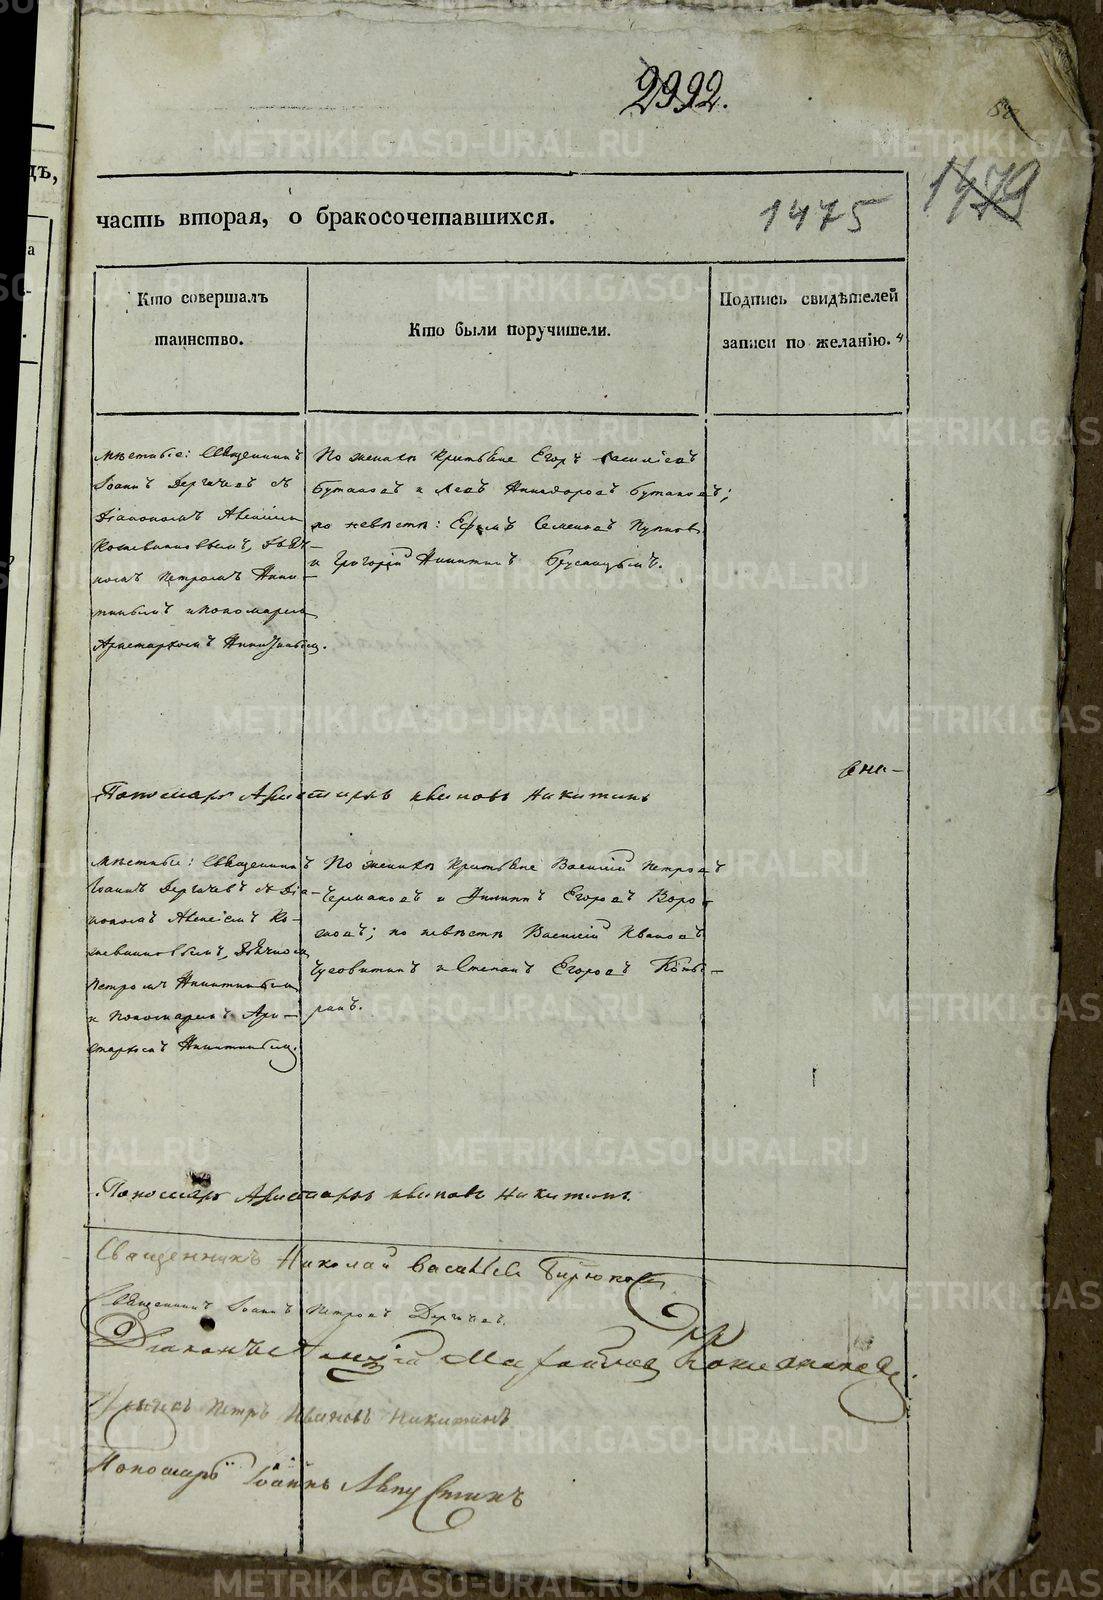 2992.
1479
часть вторая, о бракосочетавшихся.
1475
Кто совершалъ
таинство.
Кто были поручители.
Подпись свидѣтелей
записи по желанію.
Мѣстные: Священникъ
Іоаннъ Дергачевъ съ
Діакономъ Алексіем
Кожевниковымъ, Дьяч-
комъ Петромъ Ники-
тинымъ и пономарем
Аристархомъ Никитиным.
По женихѣ Крестьяне Егоръ Василіевъ
Бутаковъ и Левъ Никифоровъ Бутаковъ;
по невѣстѣ: Ефимъ Семеновъ
и Григорій Никитинъ Брусницынъ.
Пономарь Аристархъ Ивановъ Никитинъ
Мѣстные: Священникъ
Іоаннъ Дергачевъ съ Діа-
кономъ Алексіемъ Ко-
жевниковымъ, Дьячком
Петромъ Никитинымъ
и Пономаремъ Ари-
стархомъ Никитиным.
По женихѣ Крестьяне Василій Петровъ
Чермаковъ и Филипъ Егоровъ
по невѣстѣ Василій Ивановъ
Чусовитинъ и Степанъ Егоровъ
Пономарь Аристархъ Ивановъ Никитинъ.
Священникъ Николай Васильевъ Бирюковъ
Священникъ Іоаннъ Петровъ Дергачевъ.
Діаконъ Алексій Михайловъ Кожевниковъ.
Дьячекъ Петръ Ивановъ Никитинъ
Пономарь Іоаннъ
METRIKI.GASO-URAL.RU